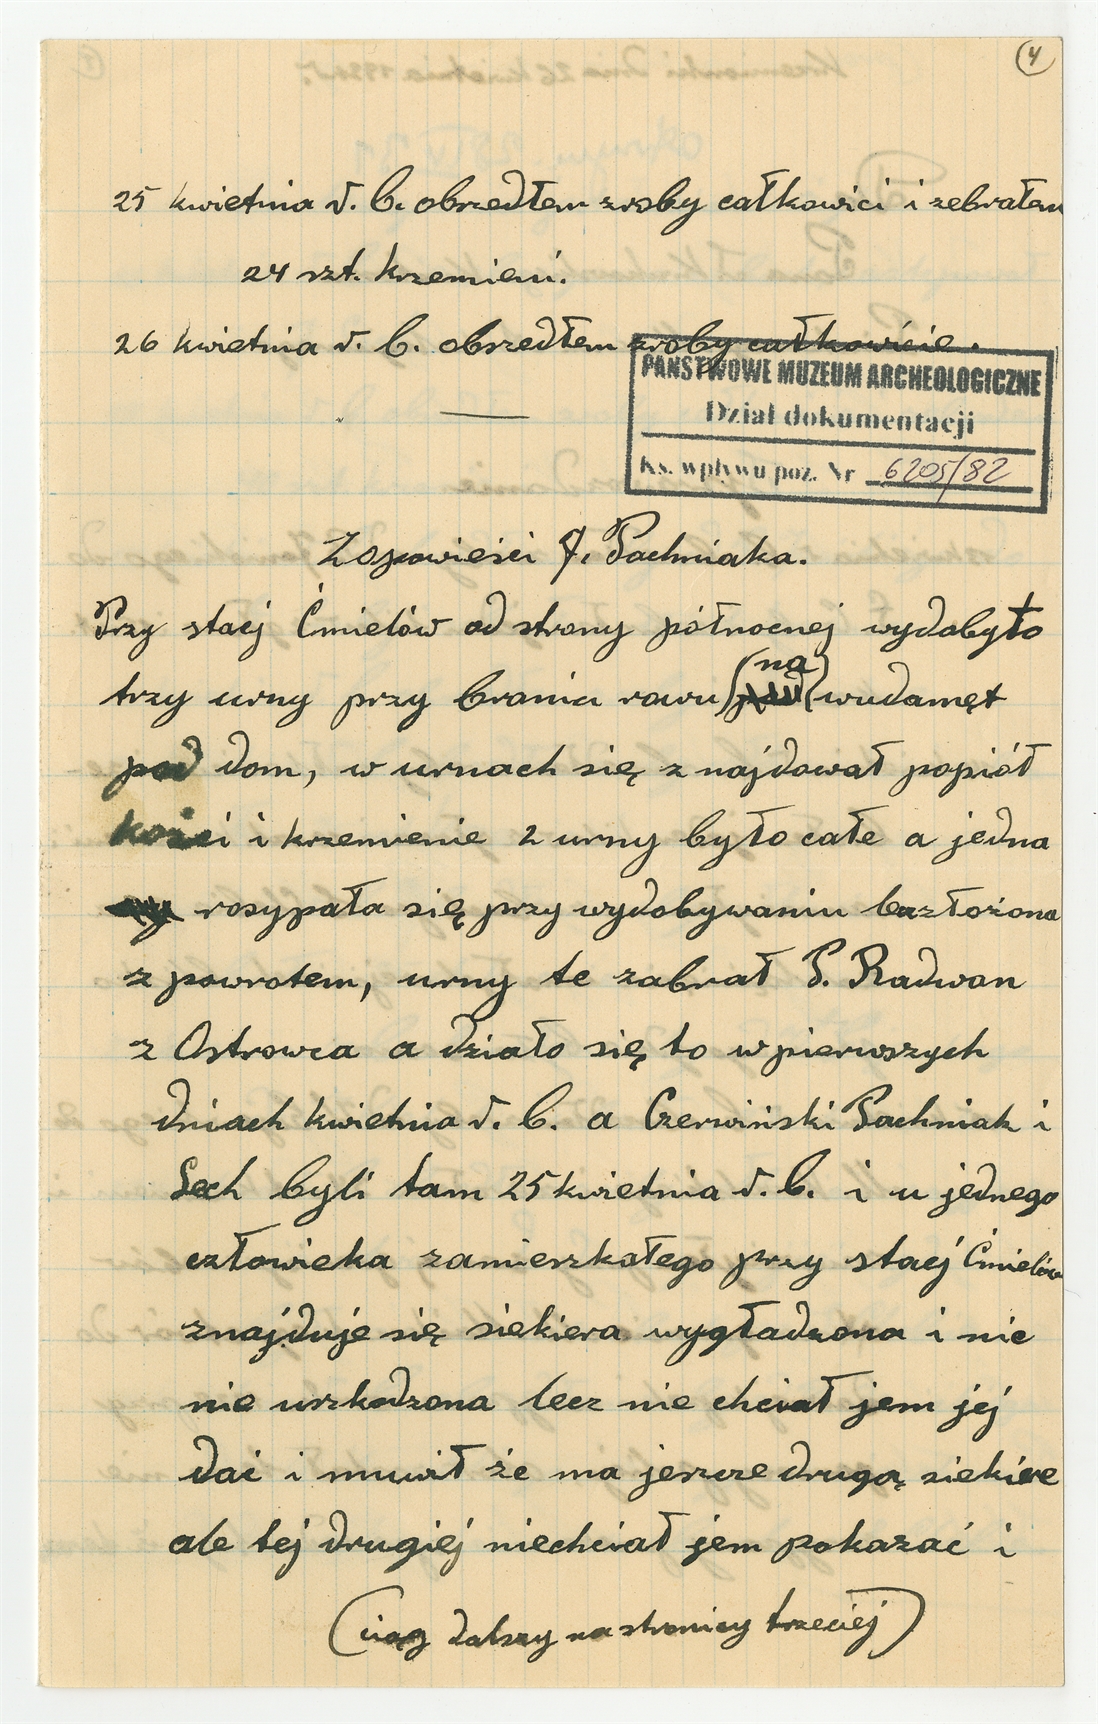 4
25 kwietnia r. b. obszedłem zroby całkowici i zebrałem
24 szt. krzemieni.
26 kwietnia r. b. obszedłem zroby całkowicie.
PAŃSTWOWE MUZEUM ARCHEOLOGICZNE
Dział dokumentacji
Ks. wpływu poz. Nr 6205/82
Z opowieści J. Pachniaka.
Przy stacj Ćmielów od strony północnej wydobyto
trzy urny przy braniu rowu (na) wudamęt
pod dom, w urnach się znajdował popiół
kości i krzemienie 2 urny było całe a jedna
rosypała się przy wydobywaniu lecz złożona
z powrotem, urny te zabrał P. Radwan
z Ostrowca a działo się to w pierwszych
dniach kwietnia r. b. a Czerwiński Pachniak i
Lech byli tam 25 kwietnia r. b. i u jednego
człowieka zamieszkałego przy stacj Ćmielów
znajduje się siekiera wygładzona i nic
nie uszkodzona lecz nie chciał jem jej
dać i muwił że ma jeszcze drugą siekiere
ale tej drugiej niechciał jem pokazać i
(ciąg dalszy na stronicy trzeciej)